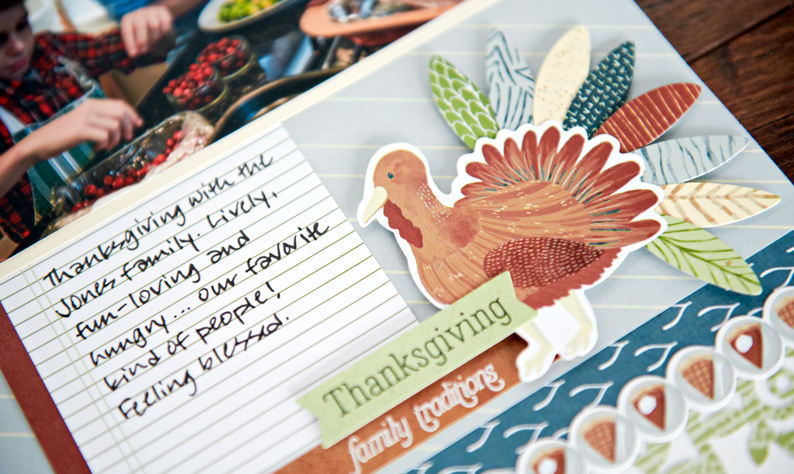 Thanksgiving with the
Jones family. Lively,
fun-loving and
hungry... our favorite
kind of people!
Feeling blessed.
Thanksgiving
family traditions